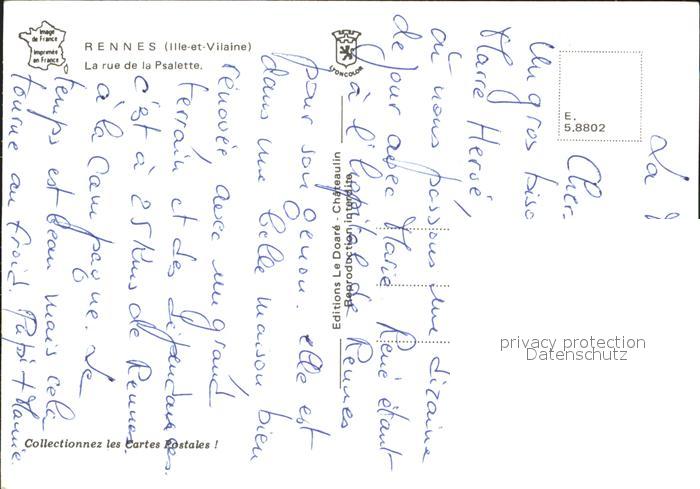 Image
de France
Imprimée
en France
RENNES (Ille-et-Vilaine)
La rue de la Psalette.
LYONCOLOR
E.
5.8802
Editions Le Doaré - Châteaulin
Reproduction interdite
Collectionnez les Cartes Postales !
privacy protection
Datenschutz
La
Cher
Un gros bise
Marie Hervé
où nous passons une dizaine
de jour avec Marie. René étant
à l'hôpital de Rennes
pour son genou. elle est
dans une belle maison bien
rénovée avec un grand
terrain et des dépendances.
c'est à 25 Kms de Rennes
à la campagne. Le
temps est beau mais cela
tourne au froid. Papi + Mamie.